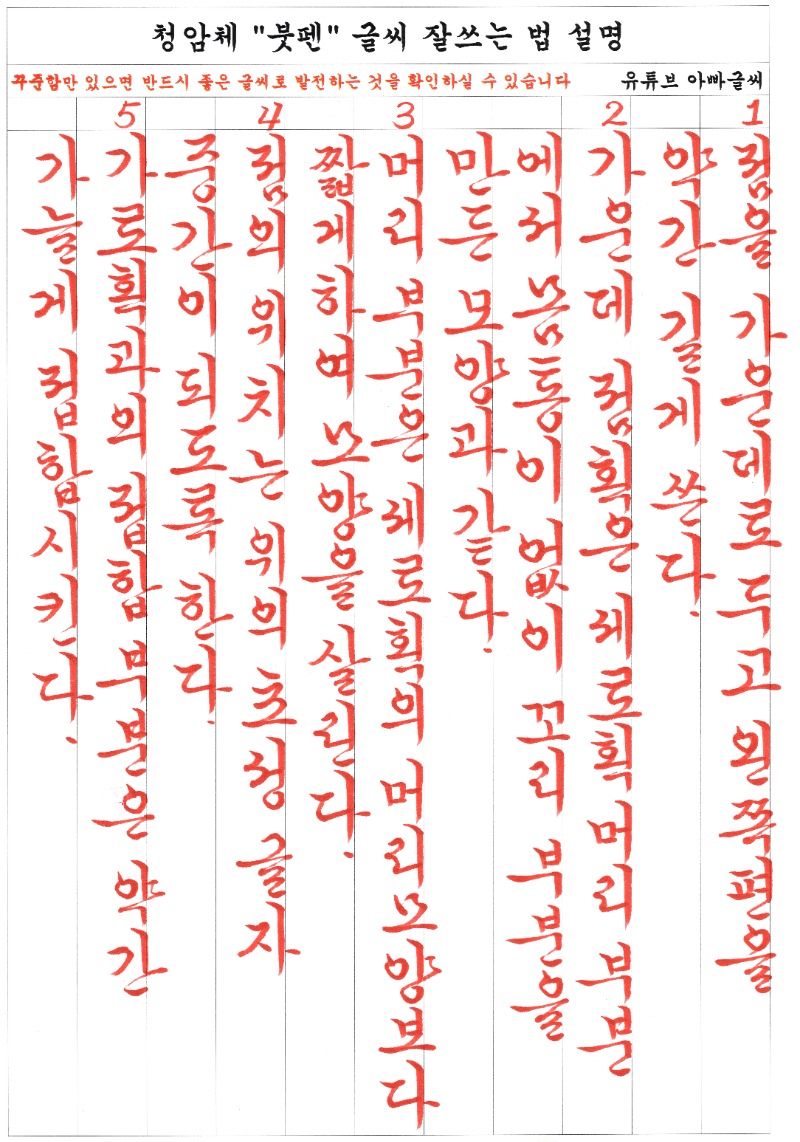 청암체 "붓펜" 글씨 잘쓰는 법 설명
꾸준함만 있으면 반드시 좋은 글씨로 발전하는 것을 확인하실 수 있습니다
유튜브 아빠글씨
1
점을 가운데로 두고 왼쪽편을
약간 길게 쓴다.
2
가운데 점획은 세로획 머리 부분
에서 몸통이 없이 꼬리 부분을
만든 모양과 같다.
3
머리 부분은 세로획의 머리모양보다
짧게하여 모양을 살린다.
4
점의 위치는 위의 초성 글자
중간이 되도록 한다.
5
가로획과의 접합 부분은 약간
가늘게 접합시킨다.